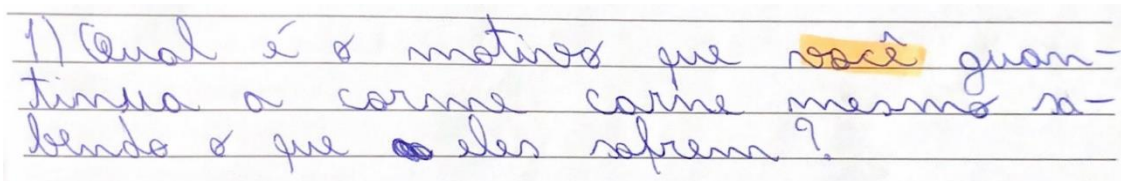 1) Qual é o motivos que você guan-
tinua a corme carne mesmo sa-
bendo o que eles sofrem?